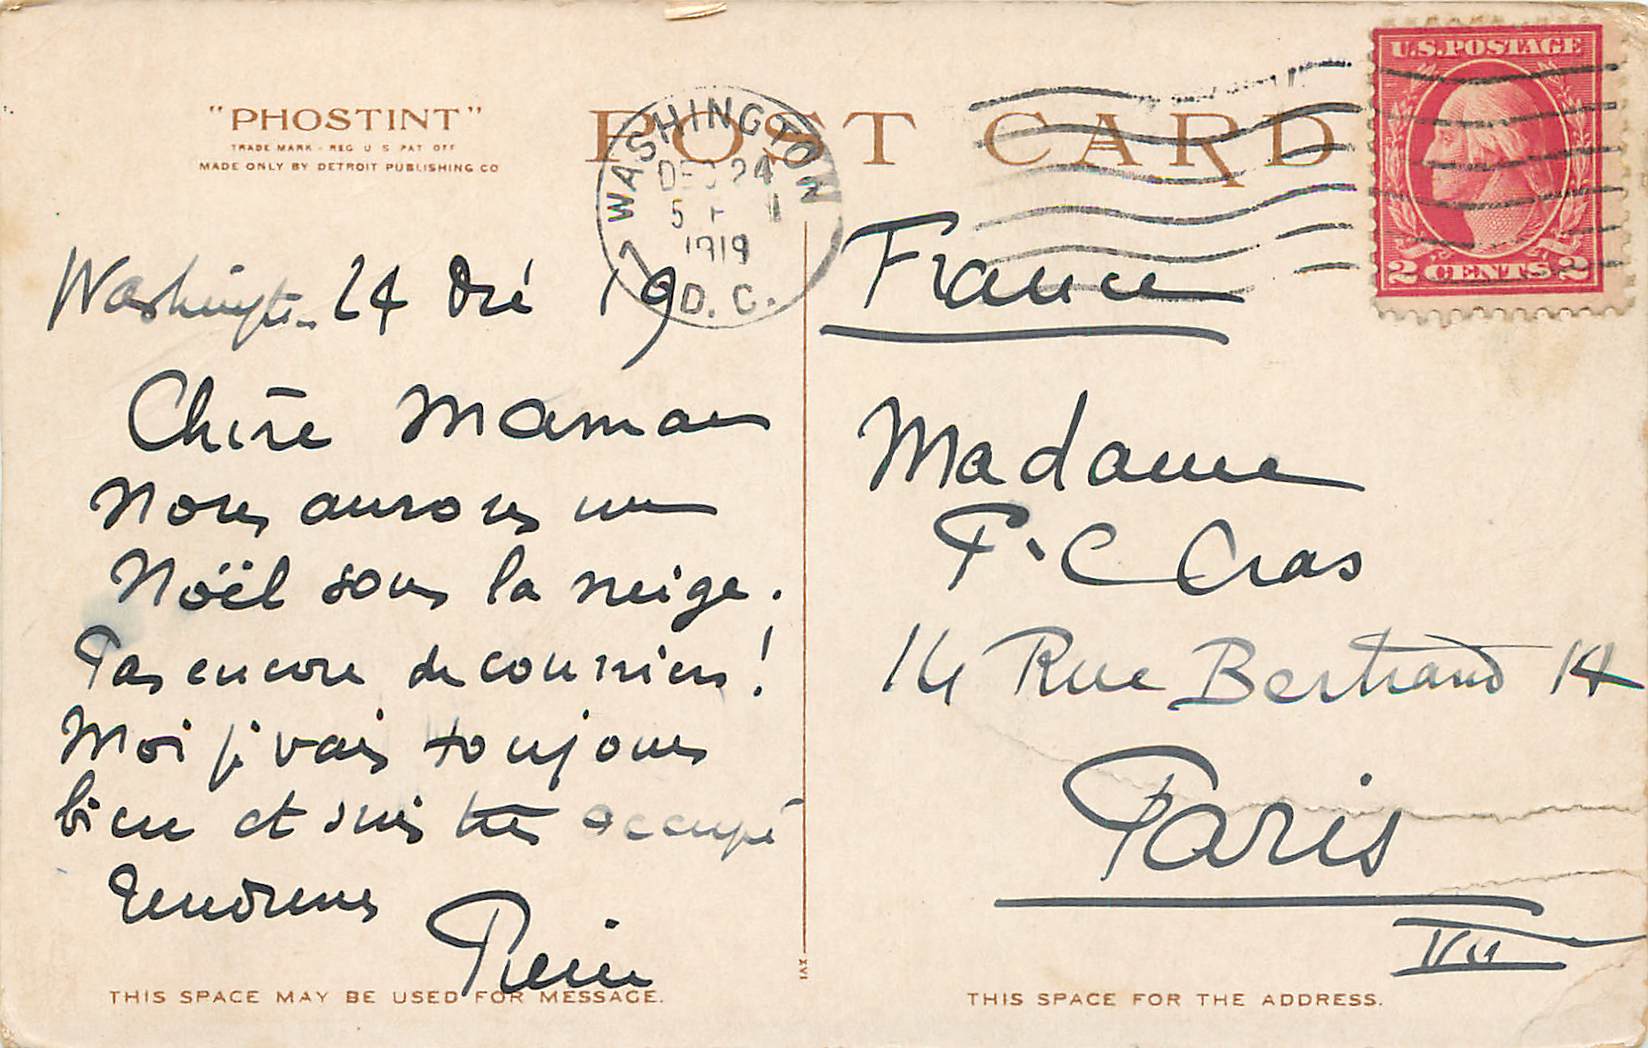 "PHOSTINT"
TRADE MARK - REG U S PAT OFF
MADE ONLY BY DETROIT PUBLISHING CO
POST CARD
WASHINGTON
DEC 24
5
1919
D. C.
U.S. POSTAGE
2 CENTS 2
Washington 24 Déc 19
Chère Maman
Nous aurons un
Noël sous la neige.
Pas encore de courriers!
Moi je vais toujours
bien et suis très occupé
Tendresses
Pierre
THIS SPACE MAY BE USED FOR MESSAGE.
XVI
France
Madame
P. C Cras
14 Rue Bertrand 14
Paris
VII
THIS SPACE FOR THE ADDRESS.